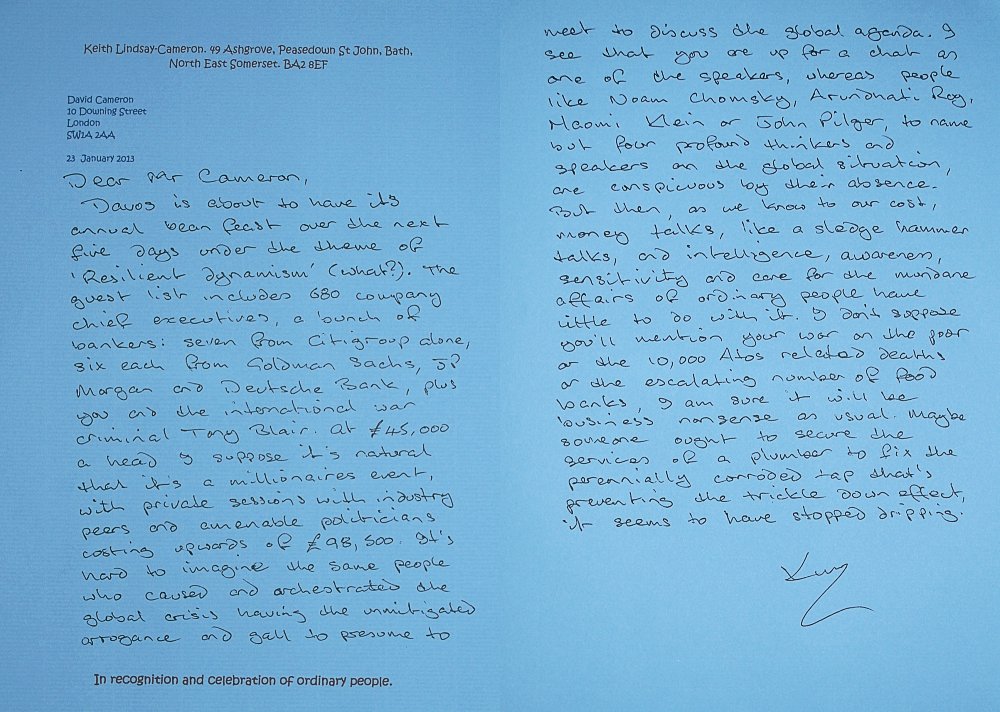 Keith Lindsay-Cameron. 49 Ashgrove, Peasedown St John, Bath,
North East Somerset. BA2 8EF
David Cameron
10 Downing Street
London
SW1A 2AA
23 January 2013
Dear Mr Cameron,
Davos is about to have its
annual bean feast over the next
five days under the theme of
'Resilient dynamism' (what?). The
guest list includes 680 company
chief executives, a bunch of
bankers: seven from Citigroup alone,
six each from Goldman Sachs, JP
Morgan and Deutsche Bank, plus
you and the international war
criminal Tony Blair. At £45,000
a head I suppose it's natural
that it's a millionaires event,
with private sessions with industry
peers and amenable politicians
costing upwards of £98,500. It's
hard to imagine the same people
who caused and orchestrated the
global crisis having the unmitigated
arrogance and gall to presume to
In recognition and celebration of ordinary people.
meet to discuss the global agenda. I
see that you are up for a chat as
one of the speakers, whereas people
like Noam Chomsky, Arundhati Roy,
Naomi Klein or John Pilger, to name
but four profound thinkers and
speakers on the global situation,
are conspicuous by their absence.
But then, as we know to our cost,
money talks, like a sledge hammer
talks, and intelligence, awareness,
sensitivity and care for the mundane
affairs of ordinary people have
little to do with it. I don't suppose
you'll mention your war on the poor
or the 10,000 Atos related deaths
or the escalating number of food
banks, I am sure it will be
business nonsense as usual. Maybe
someone ought to secure the
services of a plumber to fix the
perennially corroded tap that's
preventing the trickle down effect,
it seems to have stopped dripping.